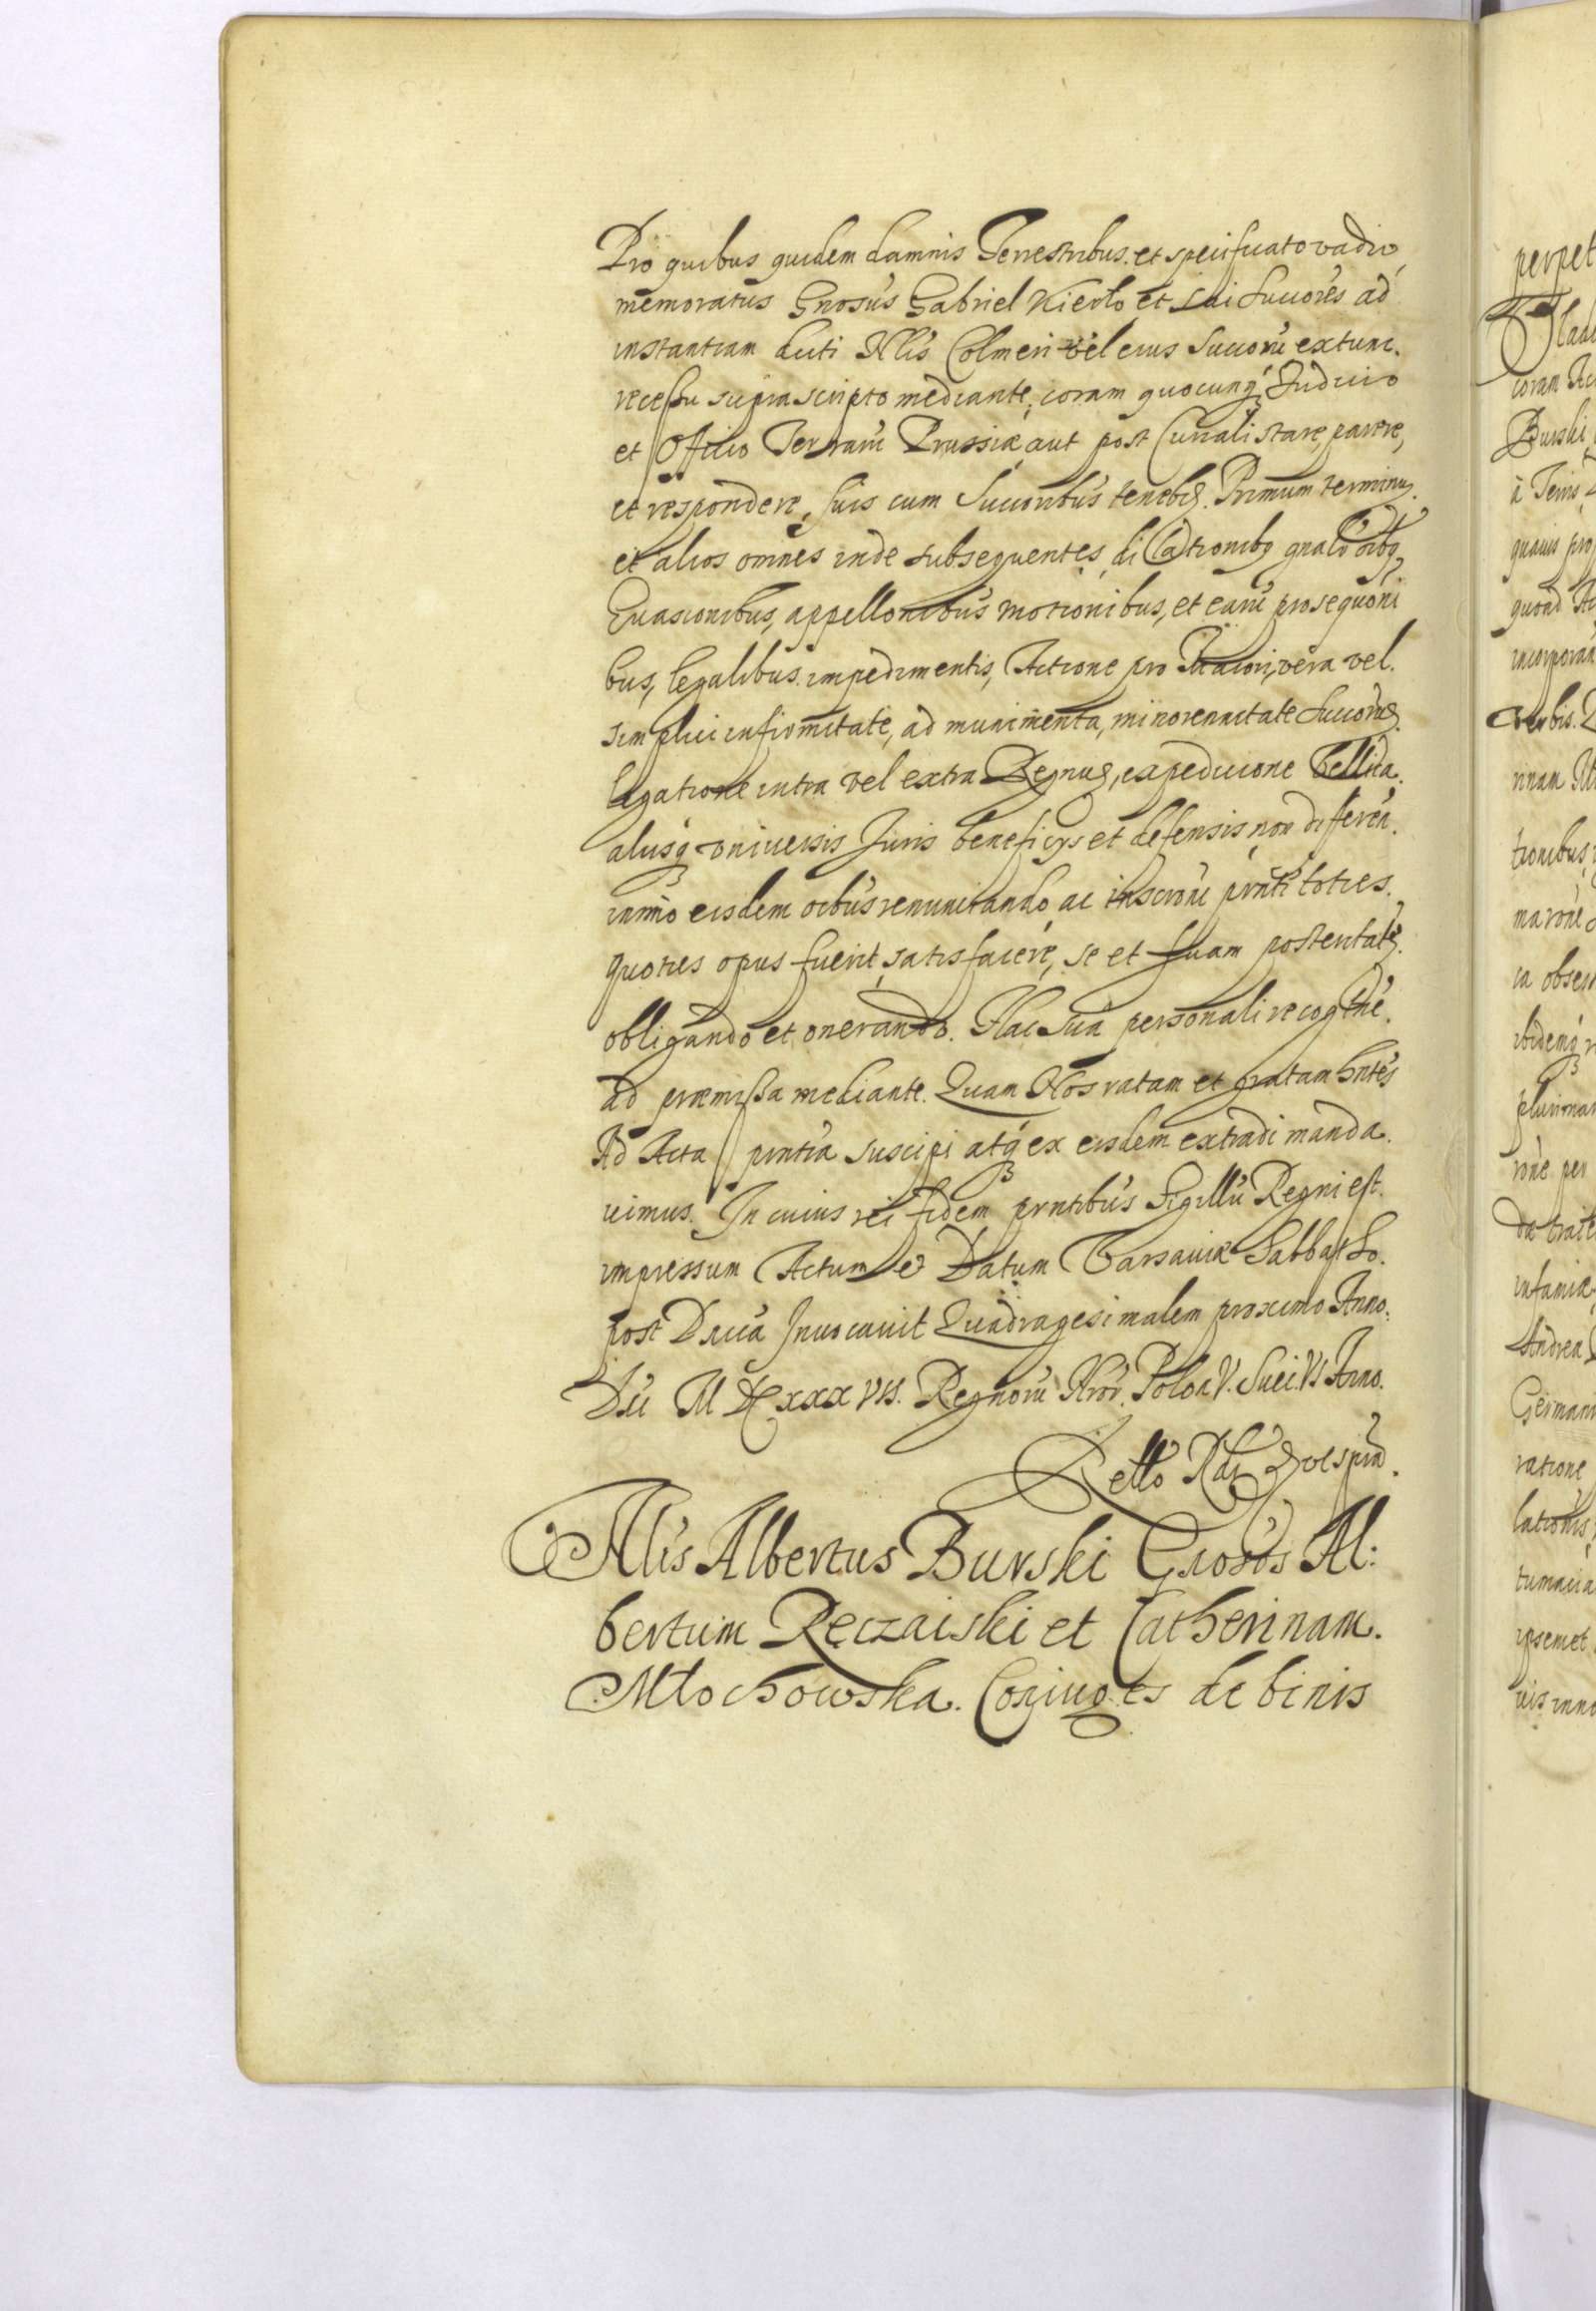 Pro quibus quidem damnis Terrestribus. et specificato vadio
memoratus Gnosus Gabriel Kierlo et sui Succores ad
instantiam dicti Nlis Colmeri vel eius Succorũ extunc.
recessu suprascripto mediante, coram quocunq Iudicio
et Officio Terrarũ Prussiæ aut post Curiali stare, parere,
et respondere, suis cum Succoribus tenebit. Primum terminũ
et alios omnes inde subsequentes, gnalibus
Evasionibus, appellonibus motionibus, et earũ prosequoni
bus, legalibus. impedimentis, Actione pro maiori, vera vel.
simplici infirmitate, ad munimenta, minorennitate Succorũ
legatione intra vel extra Regnũ, expedicione Bellica.
alusq universis Juris beneficys et defensis, non differen.
immo eisdem oibus renunciando, ac inscrõni prnti toties.
quoties opus fuerit, satisfacere, se et suam posteritatẽ.
obligando et onerando. Hac sua personali recogne.
ad præmissa mediante. Quam Nos ratam et gratam hntes
Ad Acta prntia suscipi atq ex eisdem extradi manda.
uimus. In cuius rei fidem prntibus Sigillũ Regni est.
impressum Actum et Datum Varsaviæ Sabbatho.
post Dnica Inuocauit Quadragesimalem proximo Anno.
Dni M DC xxx VII. Regnorũ Nror. Polon V. Suei. VI Anno.
Rello Rdi ut supra.
Nlis Albertus Burski Gnosos Al:
bertum Ręczaiski et Catherinam.
Młochowska. Coniuges de binis
perpet
coram Ac
Burski
à Terris
quauis pro
quoad Ac
incorporan
verbis.
rinam
tionibus
ca obser
ibidemq
plurimar
rõne per
infamiæ
Andrea
German
ratione
lationis
tumacia
ipsemet